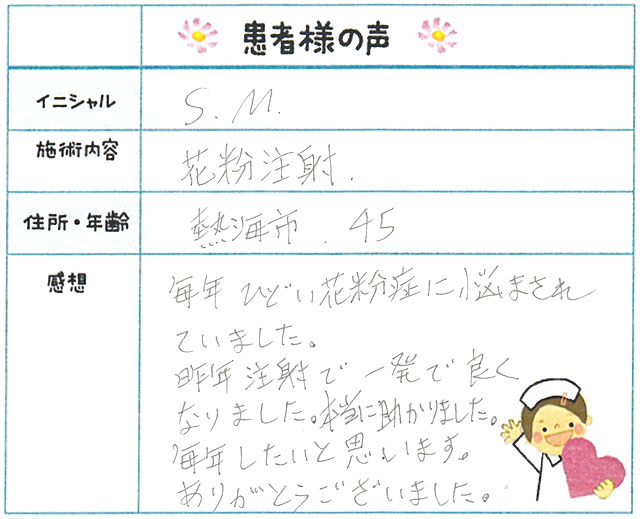 患者様の声
イニシャル
S.M.
施術内容
花粉注射.
住所・年齢
熱海市. 45
感想
毎年ひどい花粉症に悩まされ
ていました。
昨年注射で一発で良く
なりました。本当に助かりました。
毎年したいと思います。
ありがとうございました。